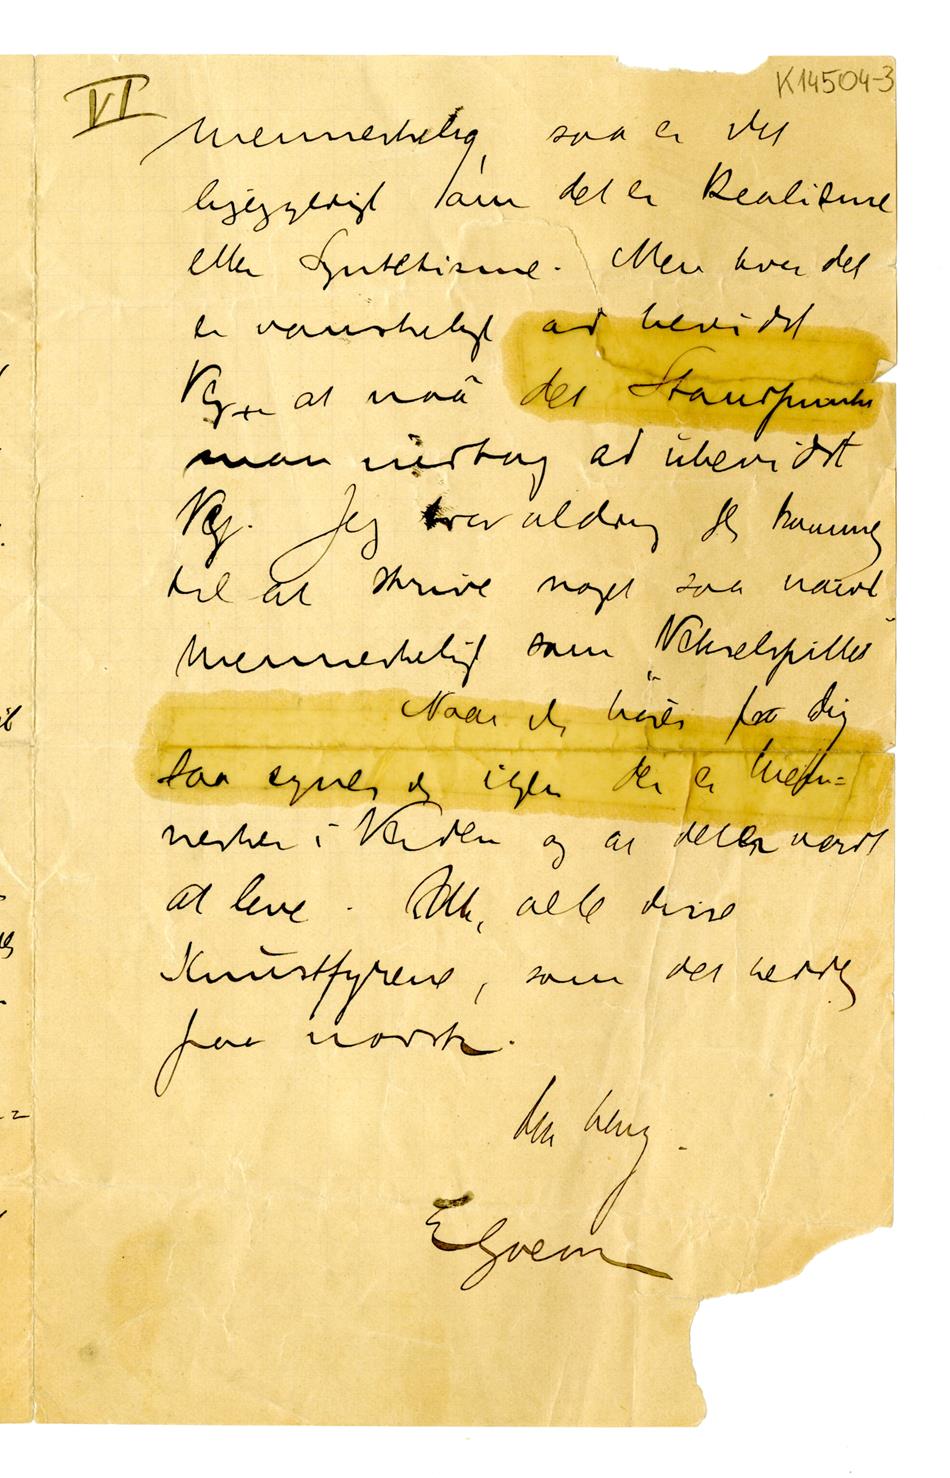 K14504-3
VI
menneskelig, saa er det
ligegyldigt om det er Realisme
eller Syntetisme. Men hvor det
er vanskeligt ad bevidst
Vej at naa det Standpunkt
man indtog ad ubevidst
Vej. Jeg tror aldrig jeg kommer
til at skrive noget saa naivt
menneskeligt som "Vekselspillet"
Naar jeg hører fra dig
saa synes jeg igen der er Men=
nesker i Verden og at det er værdt
at leve. Uh, alle disse
Kunstfyrene, som det hedder
paa norsk.
din heng.